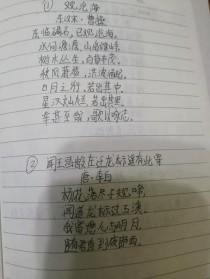 ① 观沧海
东汉末·曹操
东临碣石，以观沧海。
水何澹澹，山岛竦峙。
树木丛生，百草丰茂。
秋风萧瑟，洪波涌起。
日月之行，若出其中。
星汉灿烂，若出其里。
幸甚至哉，歌以咏志。
② 闻王昌龄左迁龙标遥有此寄
唐·李白
杨花落尽子规啼，
闻道龙标过五溪。
我寄愁心与明月，
随君直到夜郎西。